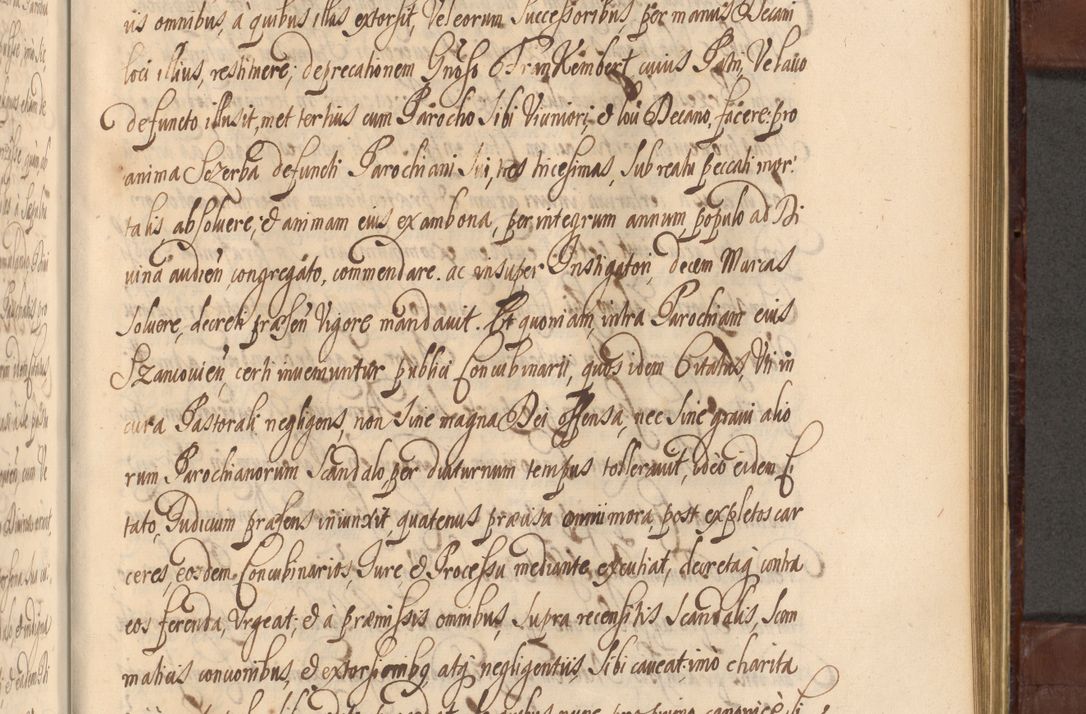 iis omnibus, à quibus illas extorsit, Vel eorum Successoribus, per manus Decani
loci illius, restituere; deprecationem Gnoso Frankembert, cuius Patri, Velatio
defuncto illusit, met tertius cum Parocho Sibi Viciniori, et loci Decano, facere: pro
anima Szerba defuncti Parochiani Sui, tres tricesimas, Sub reatu peccati mor:
talis absoluere; et animam eius ex ambona, per integrum annum, populo ad Di
uina audien congregato, commendare. ac insuper Instigatori, decem Marcas
Soluere, decreti præsen Vigore mandauit. Et quoniam, intra Parochiam eius
Szaniouien, certi inueniuntur publici Concubinarii, quos idem Citatus, Vti in
cura Pastorali negligens, non Sine magna Dei offensa, nec Sine graui alio
rum Parochianorum Scandalo, per diuturnum tempus tollerauit, ideo eidem Ci
tato, Iudicium præsens iniunxit, quatenus præcisa omni mora, post expletos car
ceres, eosdem Concubinarios, Iure et Processu mediante, excutiat, decretaq contra
eos ferenda, Vrgeat; et à præmissis omnibus, Supra recensitis Scandalis, Scom
maticis concionibus, et extorsionibq atq negligentiis, Sibi caueat; imò charita